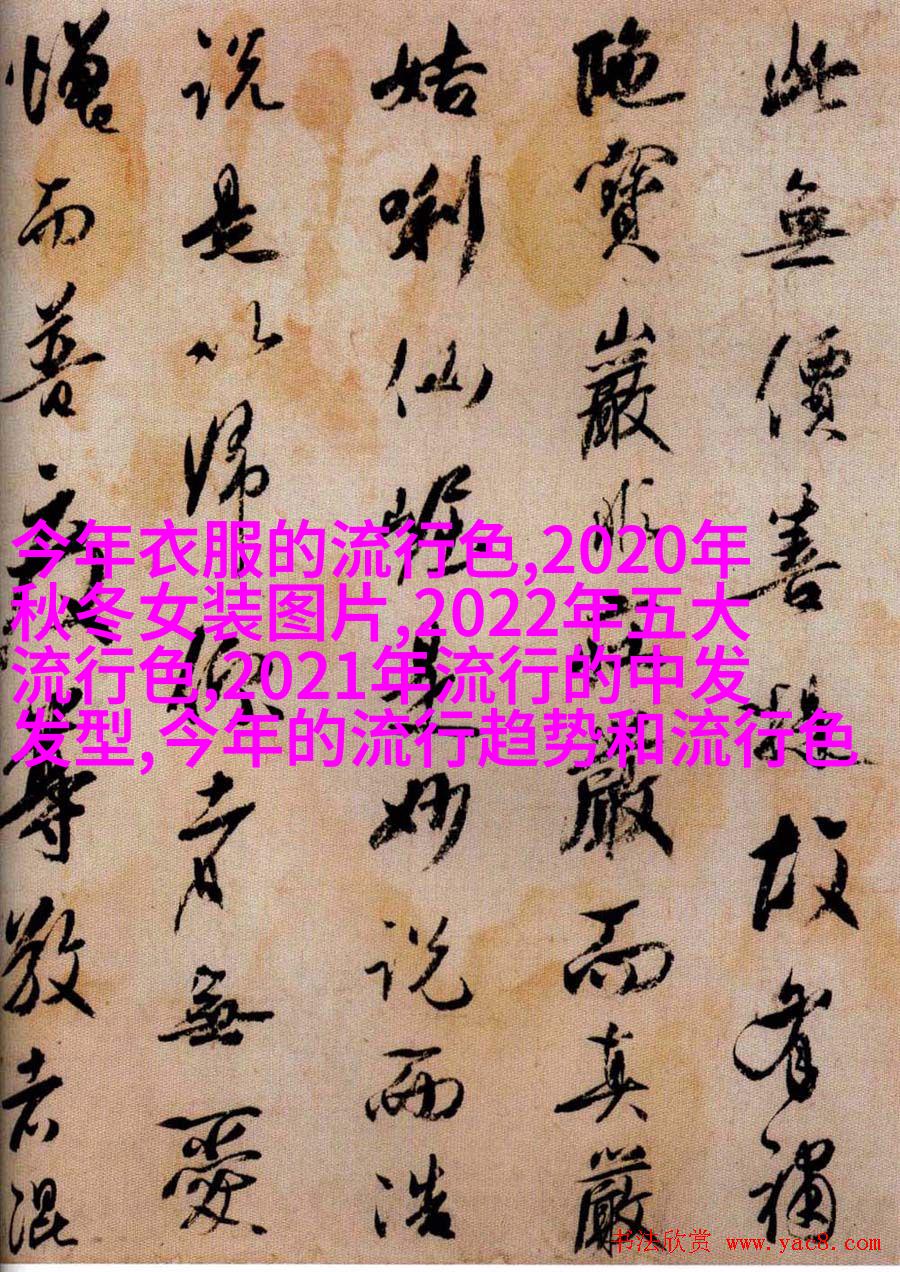 此無價善故有補
陁寶巖嚴而真嚴
姑唎仙妙说而浩
说是以歸無愛
而善敬者混
今年衣服的流行色,2020年
秋冬女装图片,2022年五大
流行色,2021年流行的中发
发型,今年的流行趋势和流行色
书法欣赏 www.yac8.com